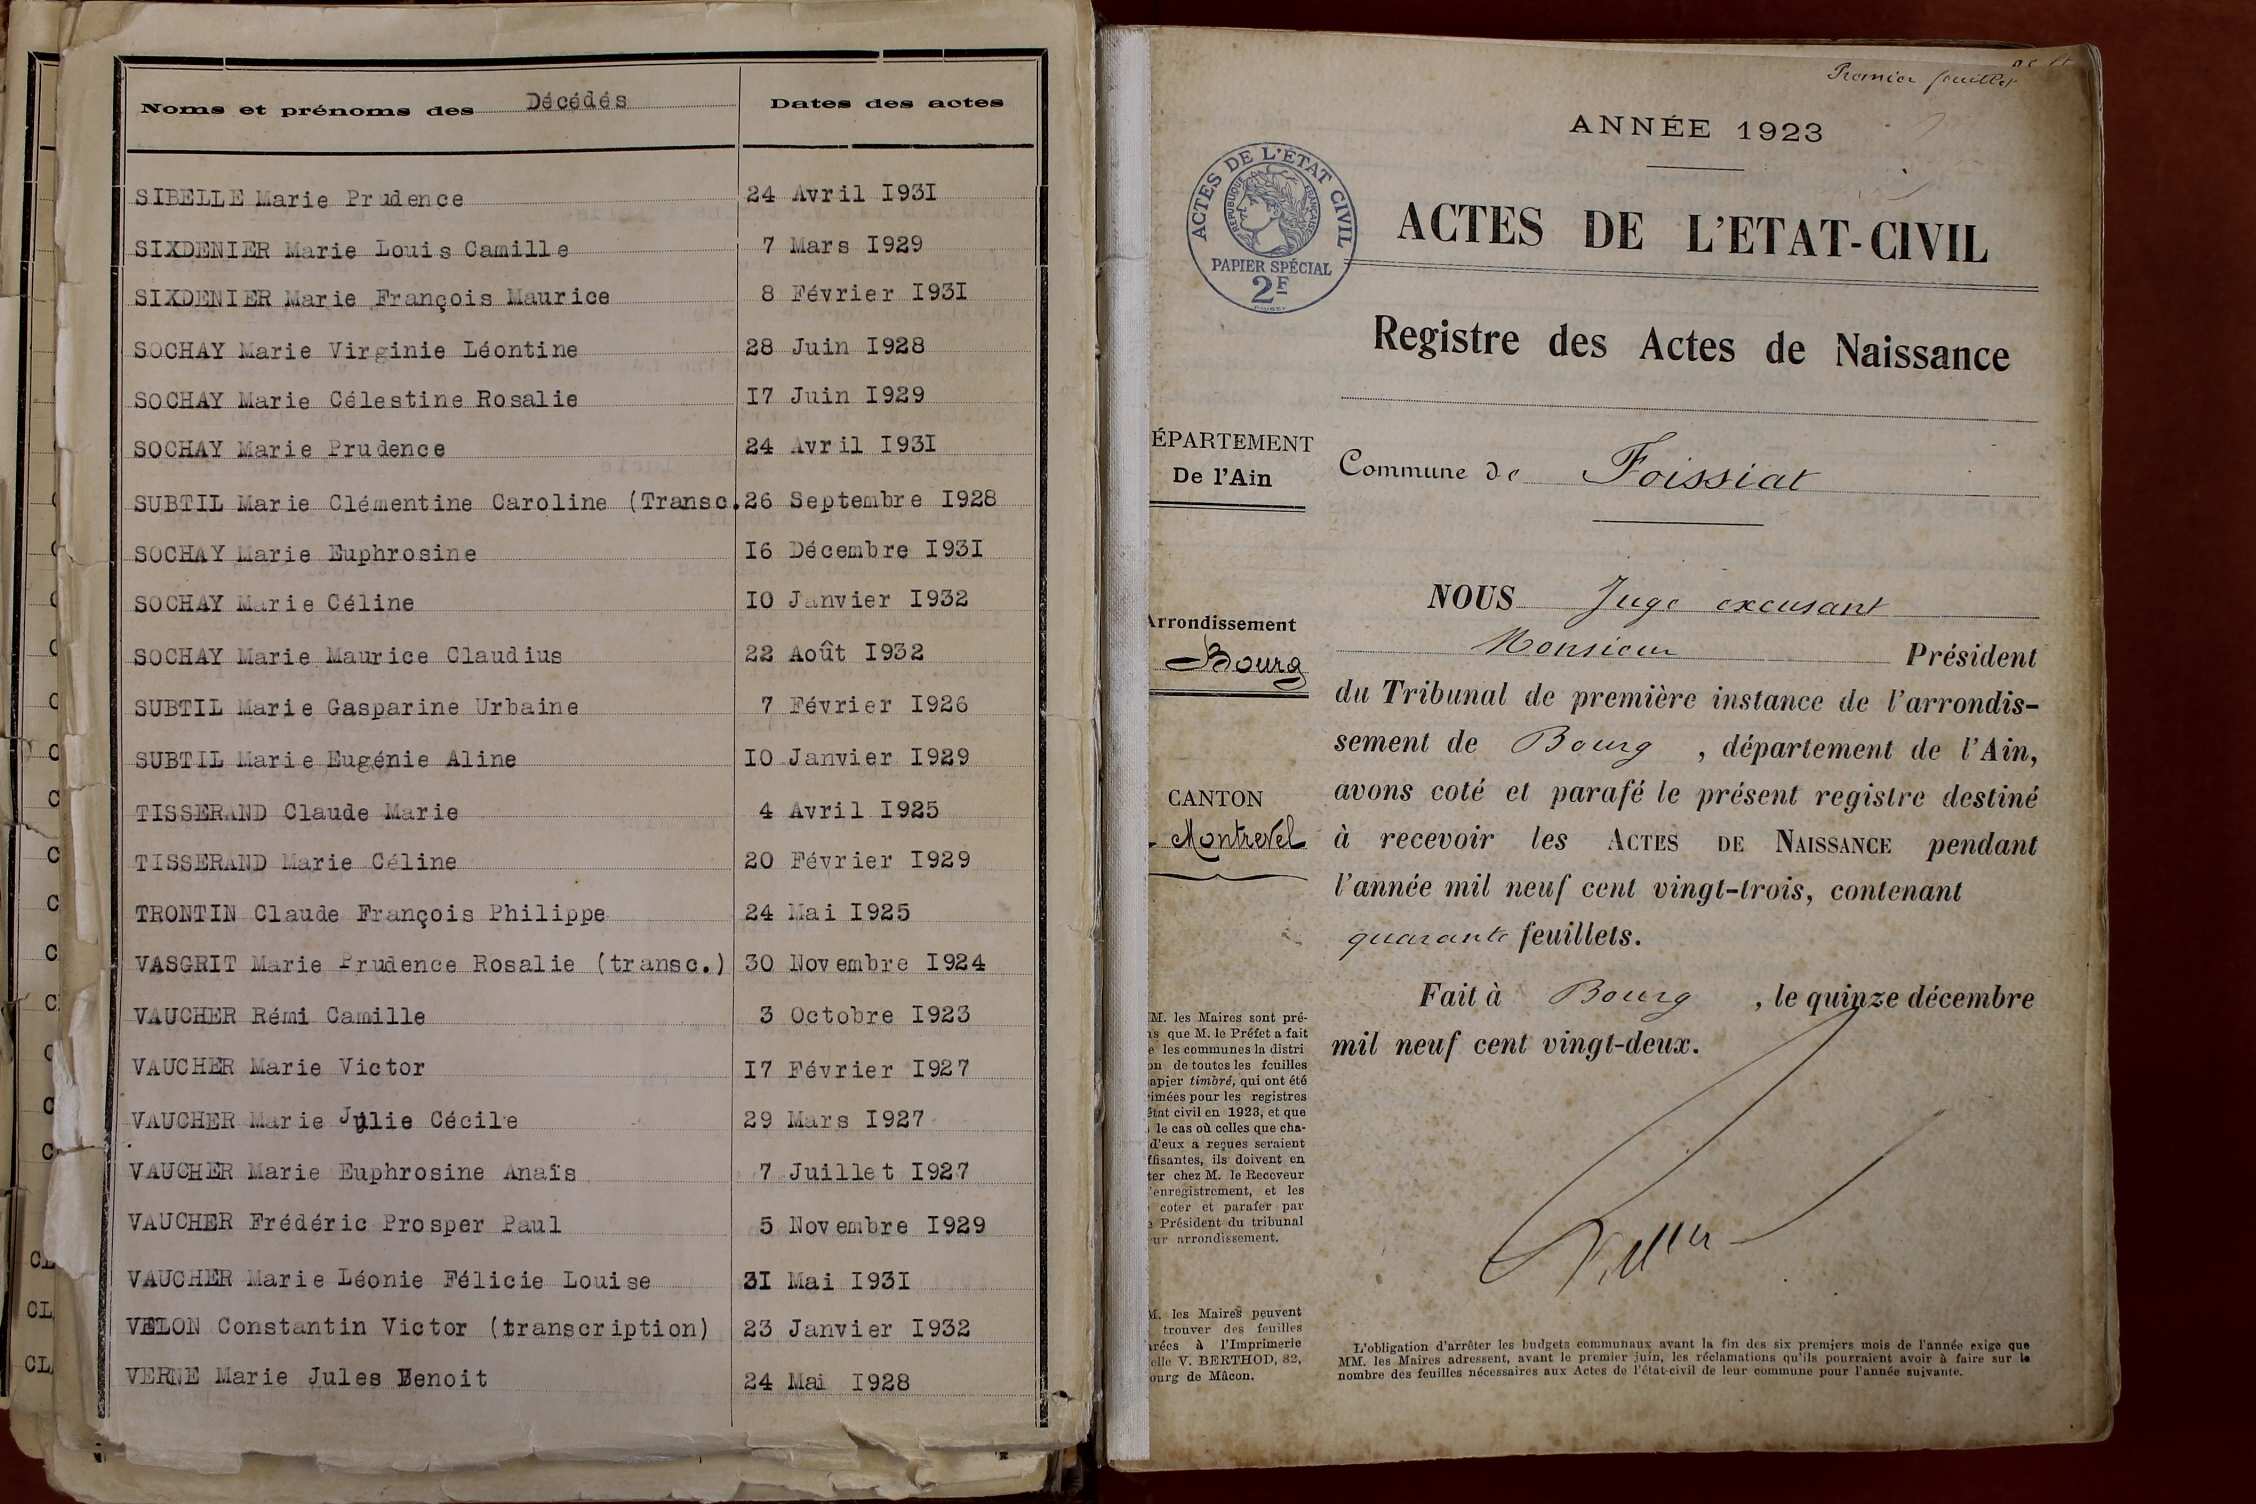 Noms et prénoms des Décédés Dates des actes
SIBELLE Marie Prudence 24 Avril I93I
SIXDENIER Marie Louis Camille 7 Mars I929
SIXDENIER Marie François Maurice 8 Février I93I
SOCHAY Marie Virginie Léontine 28 Juin I928
SOCHAY Marie Célestine Rosalie I7 Juin I929
SOCHAY Marie Prudence 24 Avril I93I
SUBTIL Marie Clémentine Caroline (Transc. 26 Septembre I928
SOCHAY Marie Euphrosine I6 Décembre I93I
SOCHAY Marie Céline IO Janvier I932
SOCHAY Marie Maurice Claudius 22 Août I932
SUBTIL Marie Gasparine Urbaine 7 Février I926
SUBTIL Marie Eugénie Aline IO Janvier I929
TISSERAND Claude Marie 4 Avril I925
TISSERAND Marie Céline 20 Février I929
TRONTIN Claude François Philippe 24 Mai I925
VASGRIT Marie Prudence Rosalie (transc.) 30 Novembre I924
VAUCHER Rémi Camille 3 Octobre I923
VAUCHER Marie Victor I7 Février I927
VAUCHER Marie Julie Cécile 29 Mars I927
VAUCHER Marie Euphrosine Anaïs 7 Juillet I927
VAUCHER Frédéric Prosper Paul 5 Novembre I929
VAUCHER Marie Léonie Félicie Louise 3I Mai I93I
VELON Constantin Victor (transcription) 23 Janvier I932
VERNE Marie Jules Benoit 24 Mai I928
Premier feuillet
ANNÉE 1923
ACTES DE L'ETAT CIVIL
RÉPUBLIQUE FRANÇAISE
PAPIER SPÉCIAL
2F
ACTES DE L'ETAT-CIVIL
Registre des Actes de Naissance
ÉPARTEMENT
De l'Ain
Commune de Foissiat
Arrondissement
Bourg
CANTON
Montrevel
NOUS Juge excusant
Monsieur Président
du Tribunal de première instance de l'arrondis-
sement de Bourg, département de l'Ain,
avons coté et parafé le présent registre destiné
à recevoir les ACTES DE NAISSANCE pendant
l'année mil neuf cent vingt-trois, contenant
quarante feuillets.
Fait à Bourg, le quinze décembre
mil neuf cent vingt-deux.
M. les Maires sont pré-
s que M. le Préfet a fait
e les communes la distri
on de toutes les feuilles
apier timbré, qui ont été
imées pour les registres
état civil en 1923, et que
le cas où celles que cha-
d'eux a reçues seraient
ffisantes, ils doivent en
ter chez M. le Receveur
'enregistrement, et les
coter et parafer par
e Président du tribunal
ur arrondissement.
M. les Maires peuvent
trouver des feuilles
rées à l'Imprimerie
elle V. BERTHOD, 82,
ourg de Mâcon.
L'obligation d'arrêter les budgets communaux avant la fin des six premiers mois de l'année exige que
MM. les Maires adressent, avant le premier juin, les réclamations qu'ils pourraient avoir à faire sur le
nombre des feuilles nécessaires aux Actes de l'état-civil de leur commune pour l'année suivante.